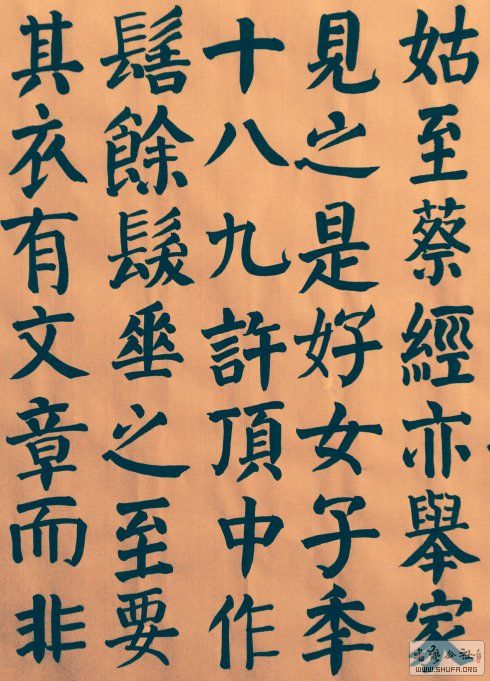 姑至蔡經亦舉家
見之是好女子秊
十八九許頂中作
髻餘髮垂之至要
其衣有文章而非
WWW.SHUFA.ORG